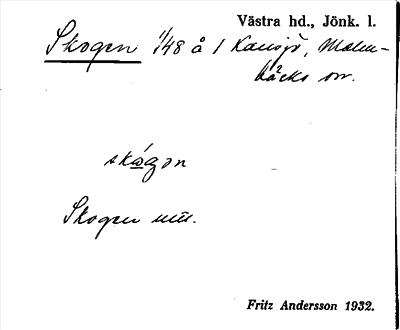 Västra hd., Jönk. l.
Skogen 1/48 å 1 Kansjö, Malm-
bäcks sn.
skógon
Skogen utt.
Fritz Andersson 1932.